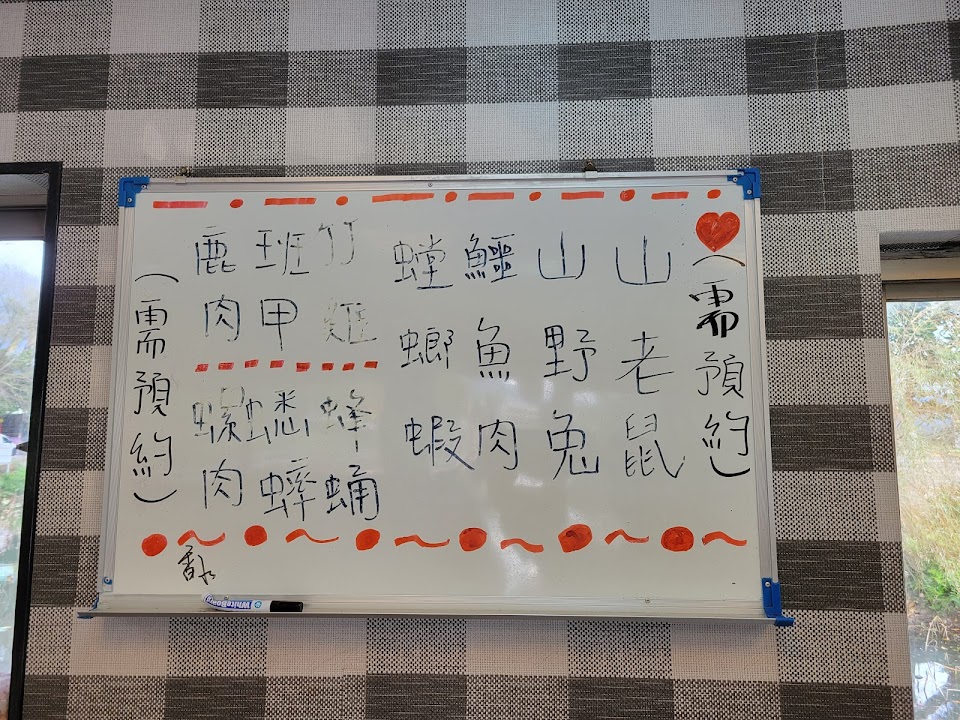 (需預約)
山老鼠
山野兔
鱷魚肉
螳螂蝦
竹
班甲
鹿肉
蜂蛹
蟋蟀
螺肉
(需預約)
香水
WhiteBoard